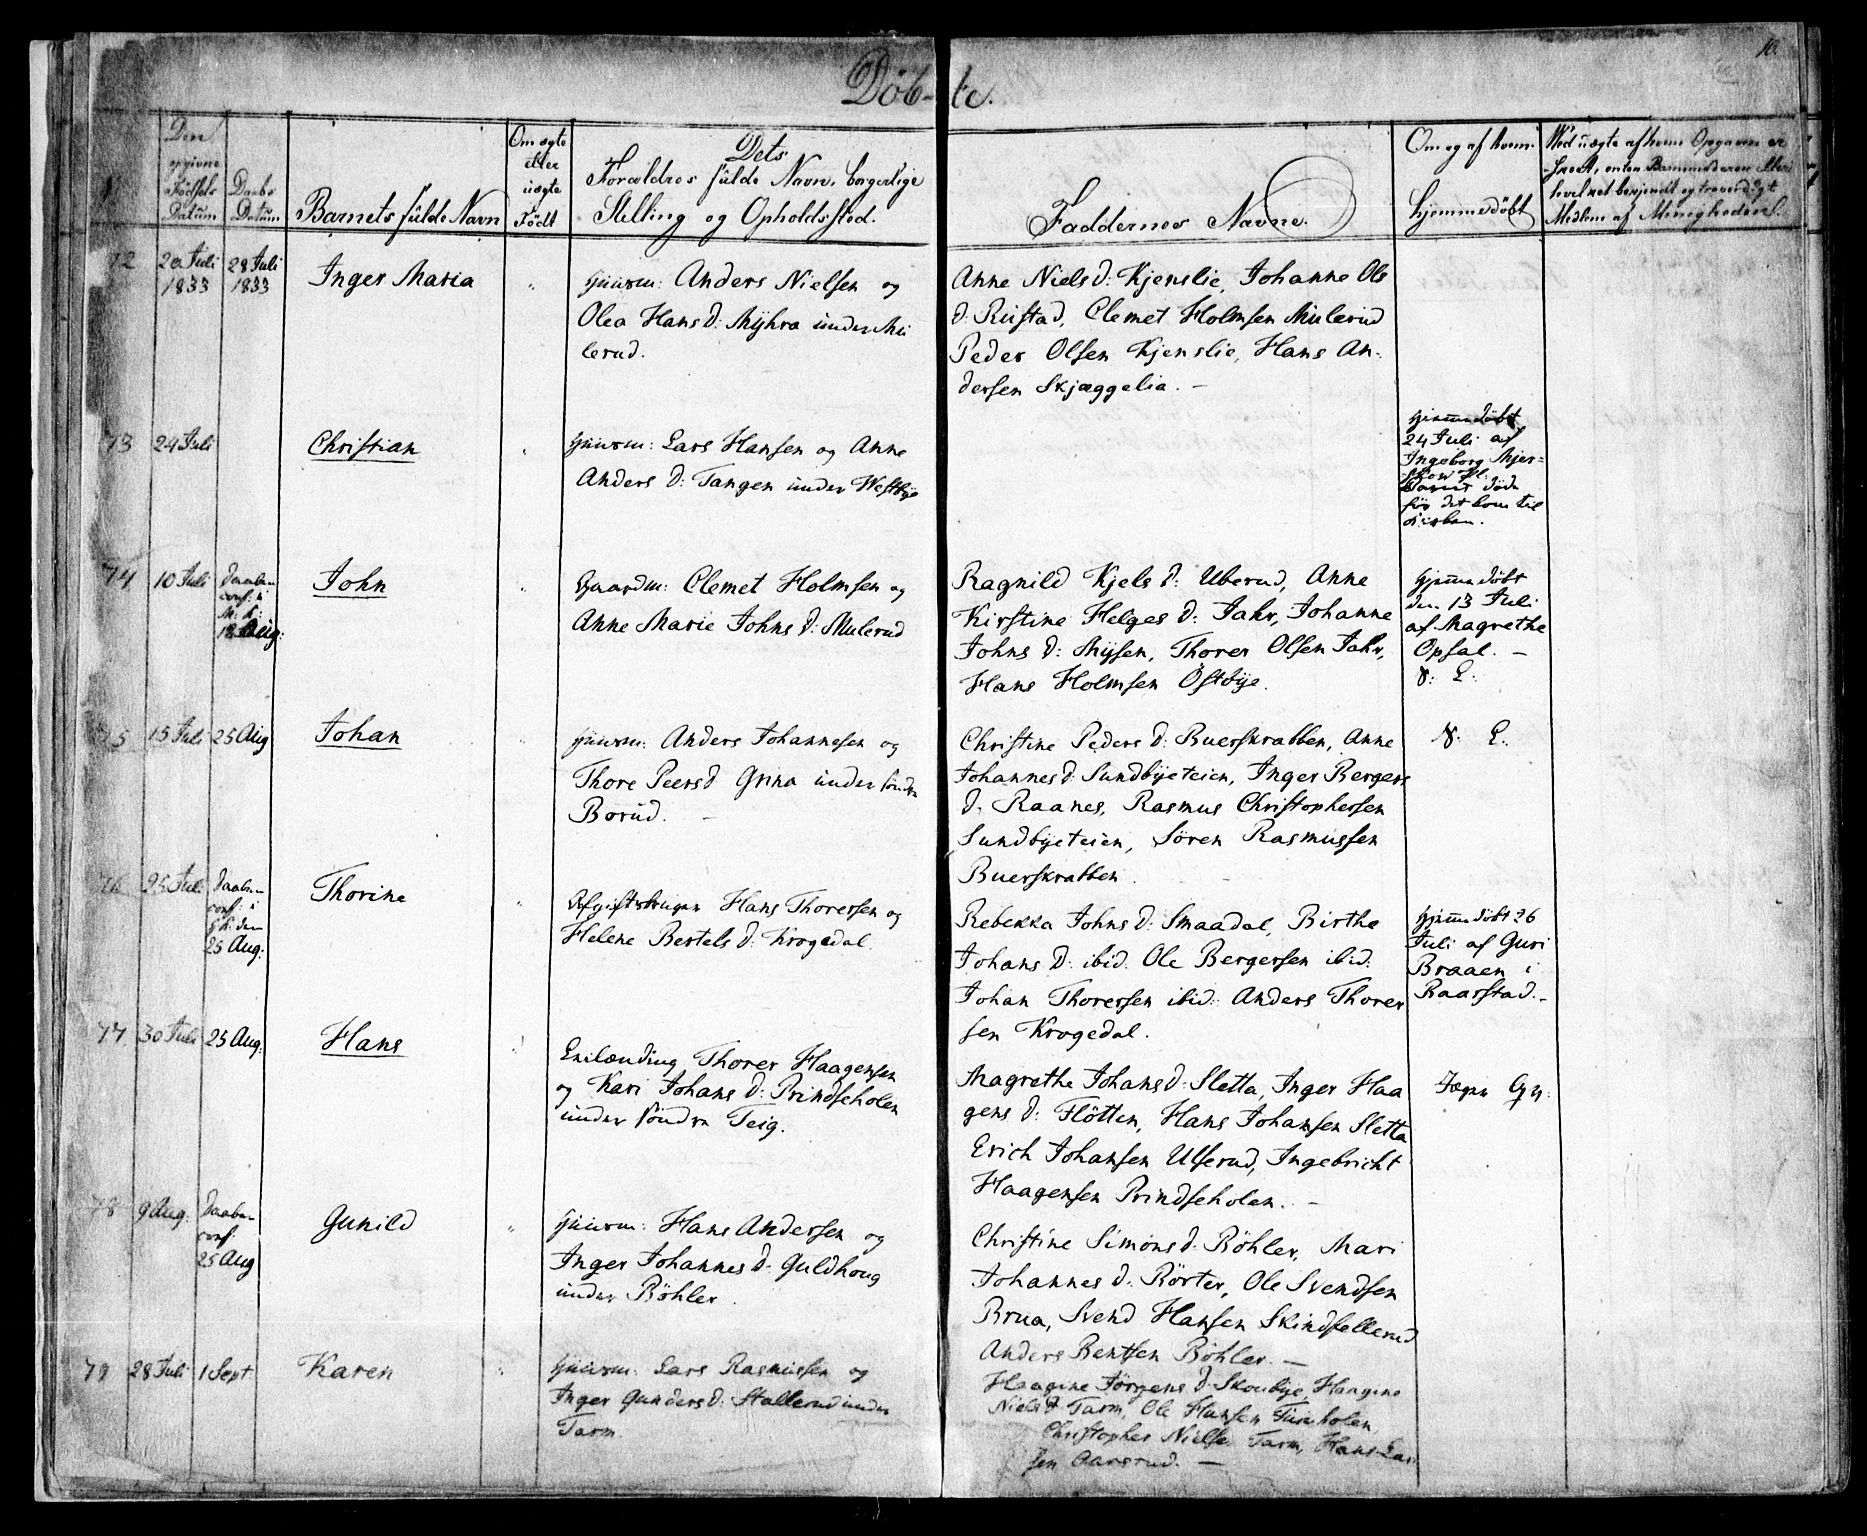 Döb- te.
10.
Den
opgivne
Födsels
Datum
Daabs
Datum
Barnets fülde Navn
Om ægte
eller
uægte
Födt
Dets
Forældres fülde Navn, borgerlige
Stilling og Opholdssted.
Faddernes Navne.
Om og af hvem
hjemmedöbt
Ved uægte af hvem Opgaven er
skeet, enten Barnemoderen eller
hvilket bekjendt og troværdigt
Medlem af Menigheden.
72
20 Juli
1833
28 Juli
1833
Inger Maria
"
Huusm: Anders Nielsen og
Olea Hans D: Myhra under Mu
lerud.
Anne Niels D: Kjenslie, Johanne Ols
D: Rustad, Clemet Holmsen Mulerud
Peder Olsen Kjenslie, Hans An-
dersen Skjæggelia. —
73
24 Juli
Christian
"
Huusm: Lars Hansen og Anne
Anders D: Tangen under Westbye
Hjemmedöbt
24 Juli af
Ingeborg Mjer-
Barnet döde
för det kom til
Kirken.
74
10 Juli
Daaben
conf: i
M. K:
18 Aug:
John
"
Gaardm: Clemet Holmsen og
Anne Marie Johns D: Mulerud
Ragnild Kjels D: Uberud, Anne
Kirstine Helges D: Jahr, Johanne
Johns D: Mysen, Thorer Olsen Jahr,
Hans Holmsen Östbye.
Hjemmedöbt
den 13 Juli
af Magrethe
Opsal. —
N: E:
75
15 Juli
25 Aug
Johan
"
Huusm: Anders Johannesen og
Thore Peers D Grina under söndre
Borud. —
Christine Peders D: Buerskrabben, Anne
Johannes D: Sundbyeteien, Inger Bergers
D: Raanes, Rasmus Christophersen
Sundbyeteien, Sören Rasmussen
Buerskrabben.
N: E:
76
25 Juli
Daaben
conf: i
G K: den
25 Aug:
Thorine
"
Afgiftsbruger Hans Thoresen og
Helene Bertels D: Krogedal.
Rebekka Johns D: Smaadal, Birthe
Johans D: ibid: Ole Bergersen ibid:
Johan Thoresen ibid: Anders Thorer
sen Krogedal.
Hjemmedöbt 26
Juli af Guri
Braaen i
Raarstad. —
77
30 Juli
25 Aug:
Hans
"
Thorer Haagensen
og Kari Johans D: Prindseholen
under Söndre Teig.
Magrethe Johans D: Sletta, Inger Haa
gens D: Flötten, Hans Johansen Sletta
Erich Johansen Ulserud, Ingebricht
Haagensen Prindseholen. —
78
9 Aug.
Daaben
conf:
25 Aug
Gunild
"
Huusm: Hans Andersen og
Inger Johannes D: Guldhoug
under Böhler.
Christine Simons D: Böhler, Mari
Johannes D: Rörter, Ole Svendsen
Brua, Svend Hansen Skindfellerud
Anders Bentsen Böhler. —
79
28 Juli
1 Sept
Karen
"
Huusm: Lars Rasmussen og
Inger Gunders D: Stallerud under
Tarm.
Haagine Jörgens D: Skoubye, Haagine
Niels D Tarm, Ole Hansen Fureholen,
Christopher Nielse Tarm, Hans Lar
sen Aarsrud. —